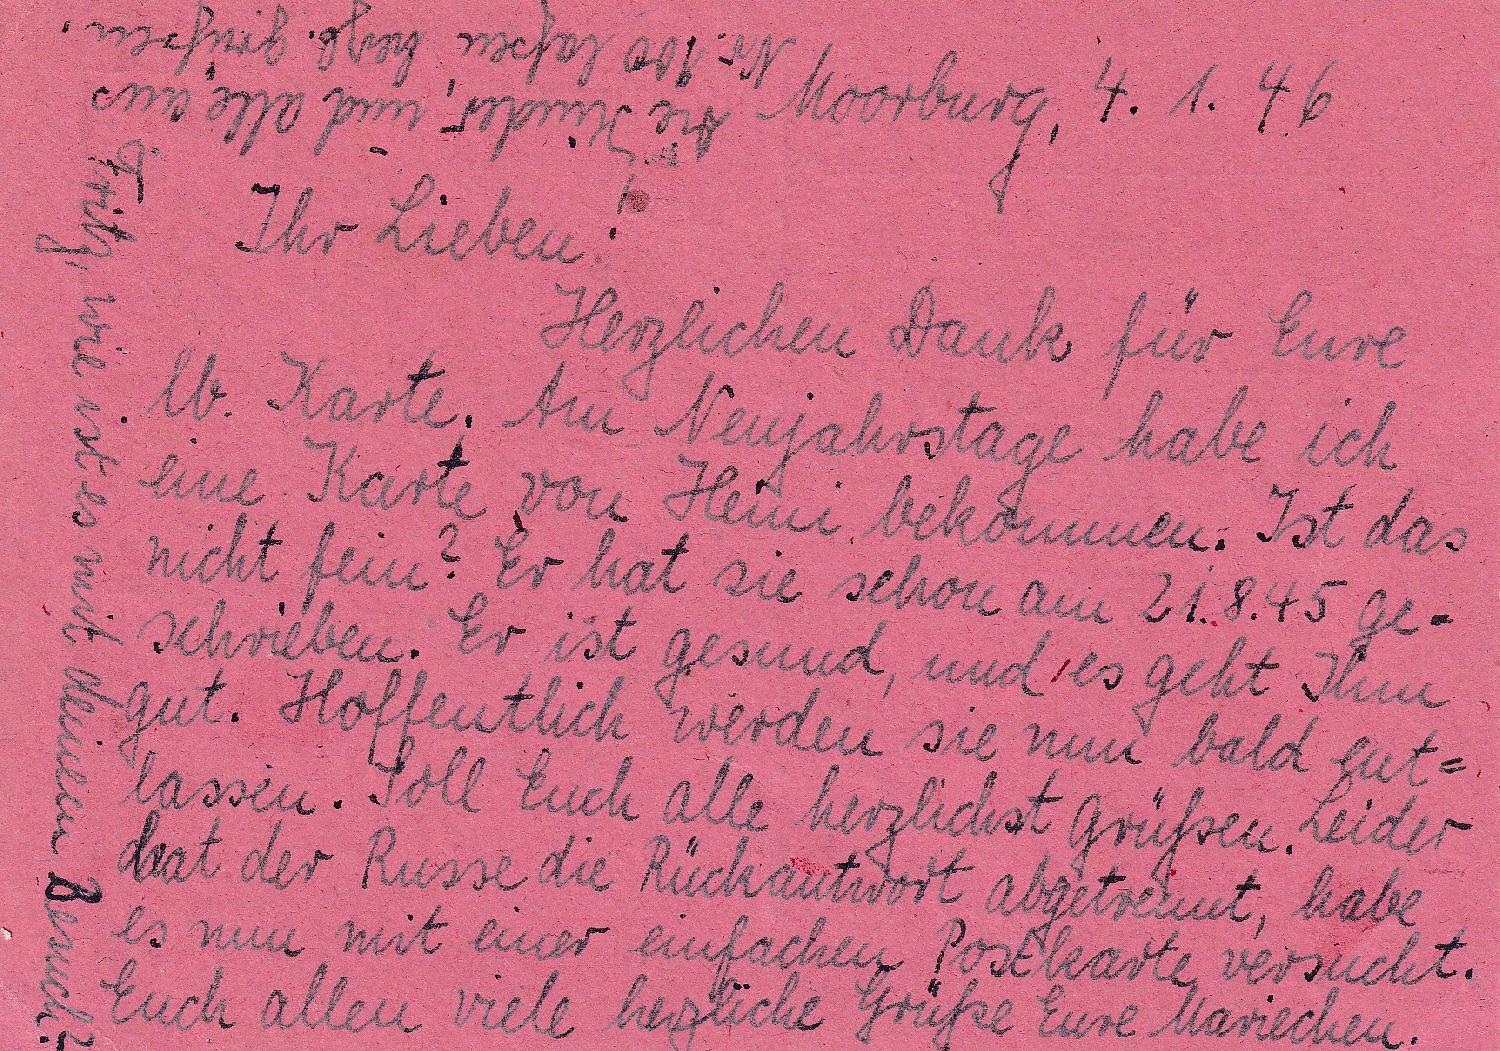 Moorburg, 4. 1. 46
Ihr Lieben!
Herzlichen Dank für Eure
lb. Karte. Am Neujahrstage habe ich
eine Karte von Heini bekommen. Ist das
nicht fein? Er hat sie schon am 21.8.45 ge-
schrieben. Er ist gesund, und es geht Ihm
gut. Hoffentlich werden sie nun bald ent=
lassen. Soll Euch alle herzlichst Grüßen. Leider
hat der Russe die Rückantwort abgetrennt, habe
es nun mit einer einfachen Postkarte versucht.
Euch allen viele herzliche Grüße Eure Mariechen.
Fritz, wie ist es mit deinem Besuch?
die Kinder, und alle aus
Nr. 100 laßen herzl. grüßen.